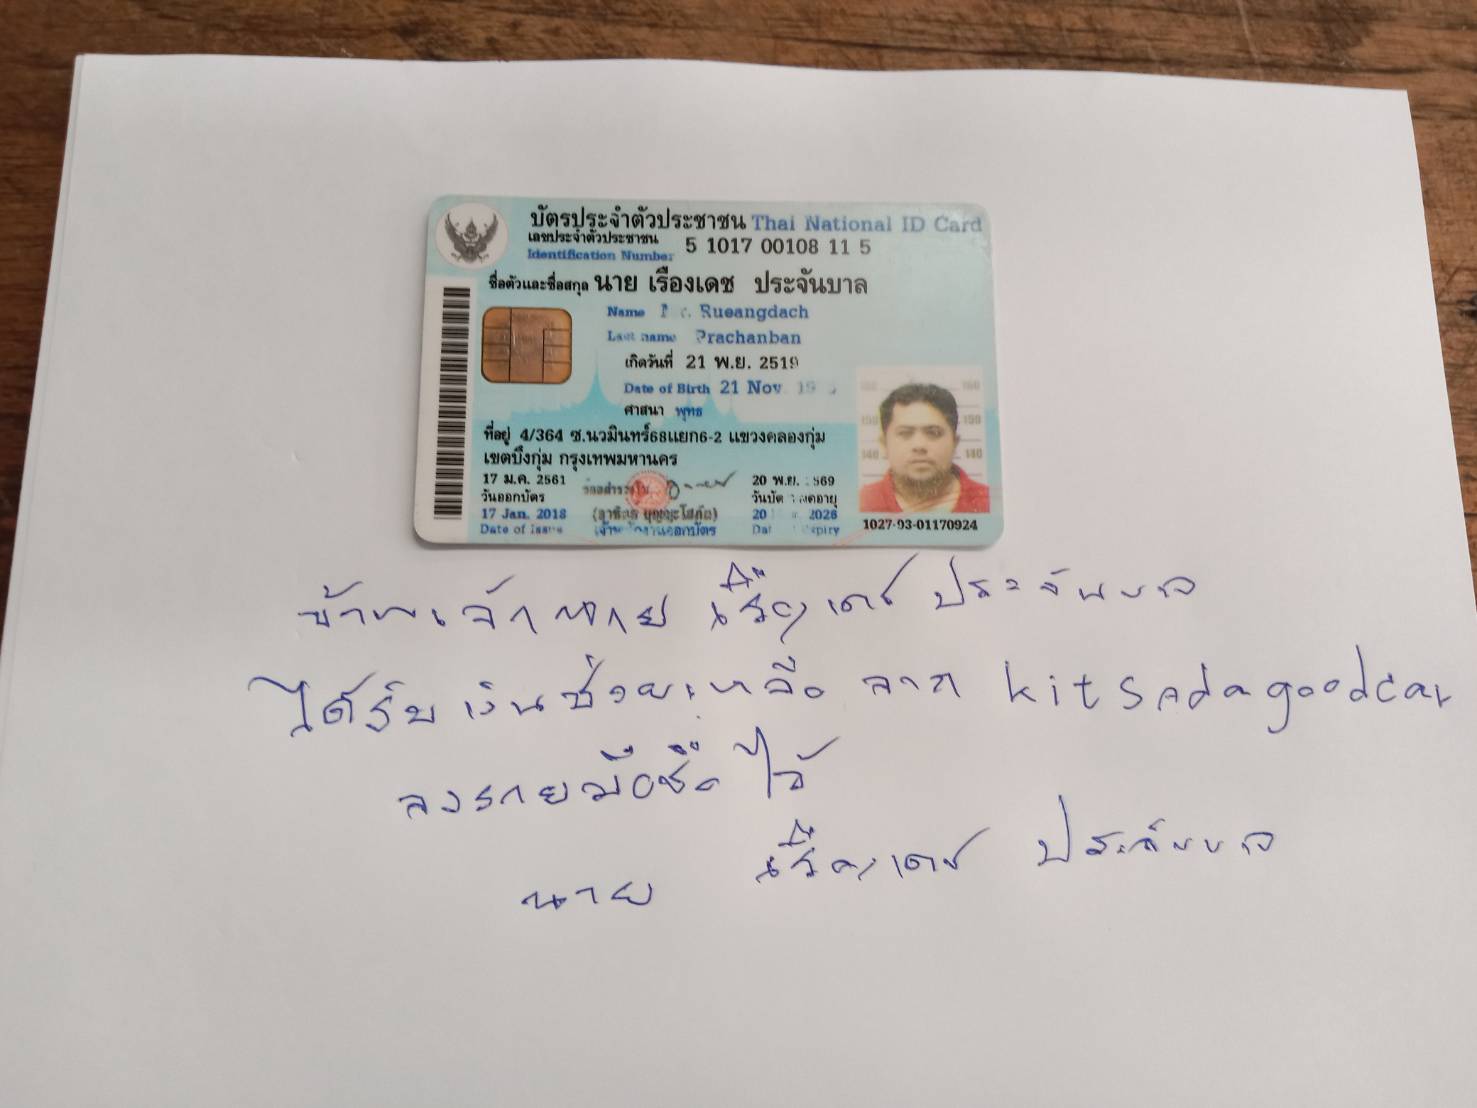 บัตรประจำตัวประชาชน Thai National ID Card
เลขประจำตัวประชาชน
Identification Number 5 1017 00108 11 5
ชื่อตัวและชื่อสกุล นาย เรืองเดช ประจันบาล
Name Rueangdach
Last name Prachanban
เกิดวันที่ 21 พ.ย. 2519
Date of Birth 21 Nov.
ศาสนา พุทธ
ที่อยู่ 4/364 ซ.นวมินทร์68แยก6-2 แขวงคลองกุ่ม
เขตบึงกุ่ม กรุงเทพมหานคร
17 ม.ค. 2561
วันออกบัตร
17 Jan. 2018
Date of Issue
เจ้าพนักงานออกบัตร
20 พ.ย.
20 2026
160 160
150 150
140 140
1027-03-01170924
ข้าพเจ้า นาย เรืองเดช ประจันบาล
ได้รับเงินช่วยเหลือ จาก kitsadagoodcar
ลงรายมือชื่อ ไว้
นาย เรืองเดช ประจันบาล